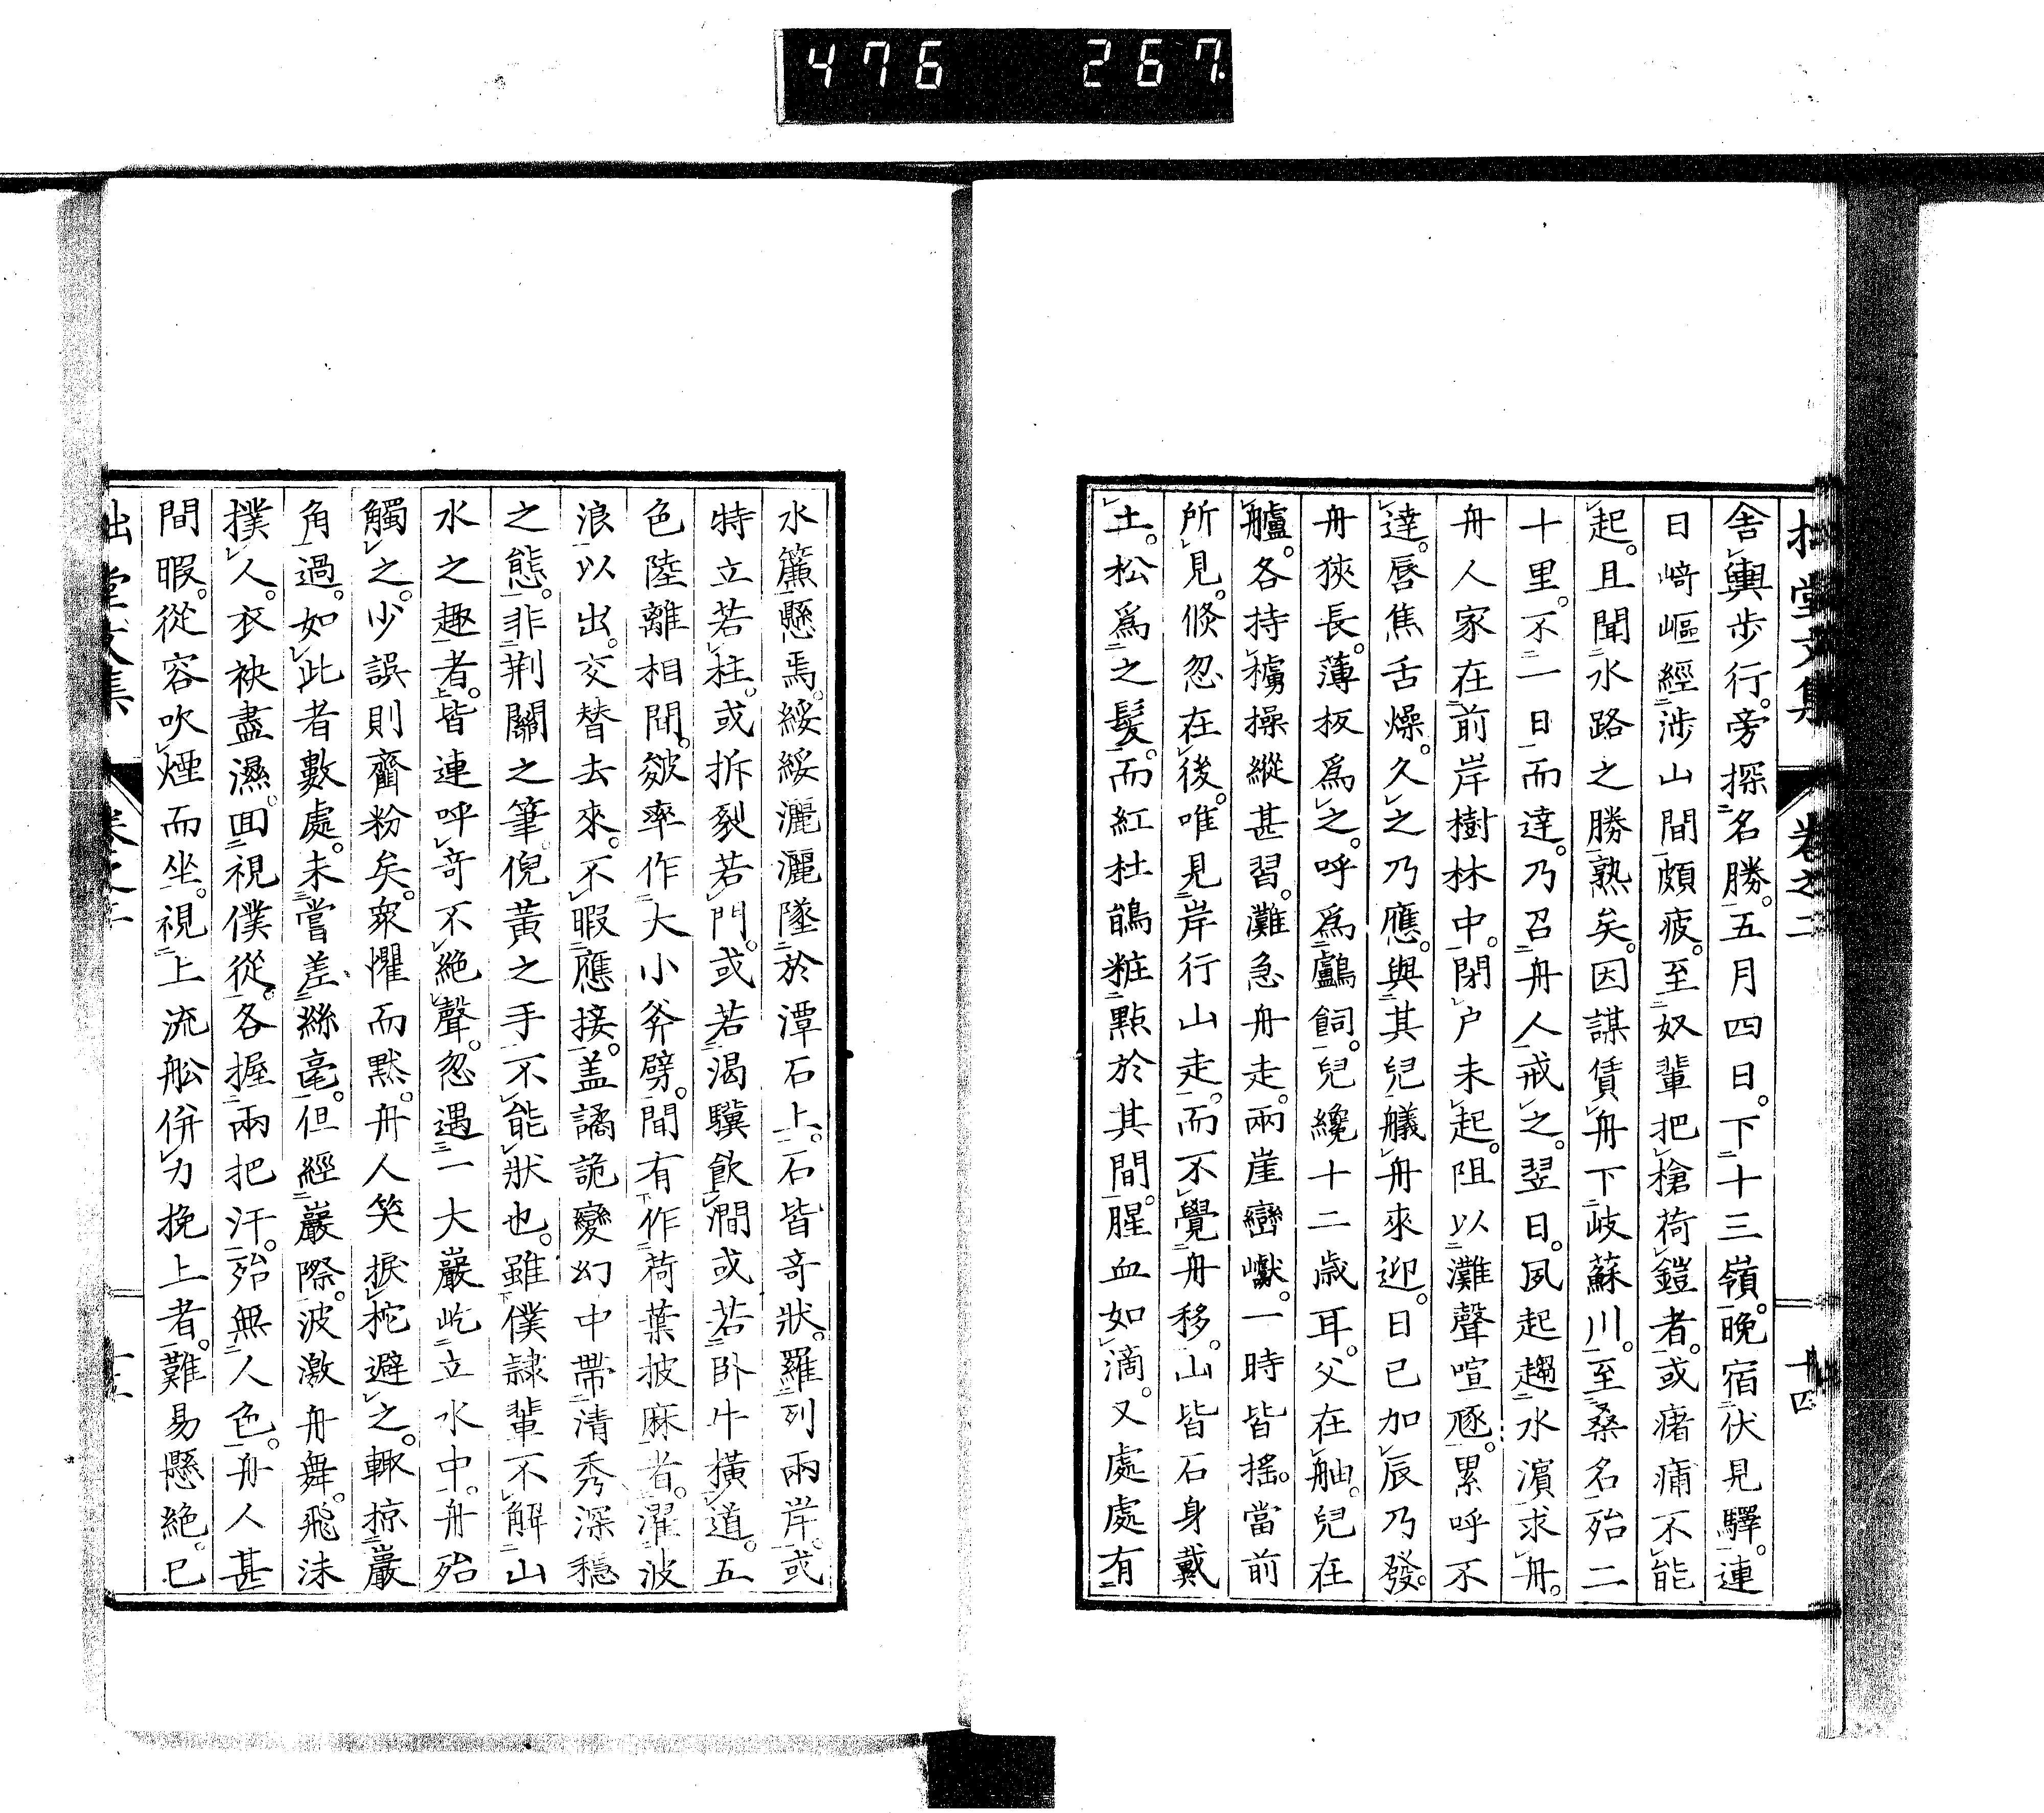 476 267
拙堂文集 卷之二 十四
舎輿歩行。旁探名勝。五月四日。下十三嶺。晩宿伏見驛。連
日﨑嶇經渉山間頗疲。至奴輩把槍荷鎧者。或瘏痡不能
起。且聞水路之勝熟矣。因謀賃舟下岐蘇川。至桑名殆二
十里。不一日而達。乃召舟人戒之。翌日。夙起趨水濵求舟。
舟人家在前岸樹林中。閉户未起。阻以灘聲喧豗。累呼不
達。唇焦舌燥。久之乃應。與其兒艤舟來迎。日已加辰乃發。
舟狹長。薄板爲之。呼爲鸕鷀飼。兒纔十二歳耳。父在舳。兒在
艫。各持櫓操縱甚習。灘急舟走。兩崖巒巘。一時皆搖。當前
所見。倏忽在後。唯見岸行山走。而不覺舟移。山皆石身戴
土。松爲之髮。而紅杜鵑粧點於其間。腥血如滴。又處處有
水簾懸焉。綏綏灑灑墜於潭石上。石皆竒狀。羅列兩岸。或
特立若柱。或拆裂若門。或若渴驥飲澗或若卧牛橫道。五
色陸離相間。皴率作大小斧劈。間有作荷葉披麻者。濯波
浪以出。交替去來。不暇應接。盖譎詭變幻中帶清秀深穩
之態。非荆關之筆。倪黃之手。不能狀也。雖僕隷輩不解山
水之趣者。皆連呼竒不絶聲。忽遇一大巖屹立水中。舟殆
觸之。少誤則齏粉矣。衆懼而默。舟人笑捩柁避之。輙掠巖
角過。如此者數處。未嘗差絲毫。但經巖際。波激舟舞。飛沫
撲人。衣袂盡濕。回視僕從。各握兩把汗。殆無人色。舟人甚
間暇。從容吹煙而坐。視上流舩併力挽上者。難易懸絶。已
拙堂文集 卷之二